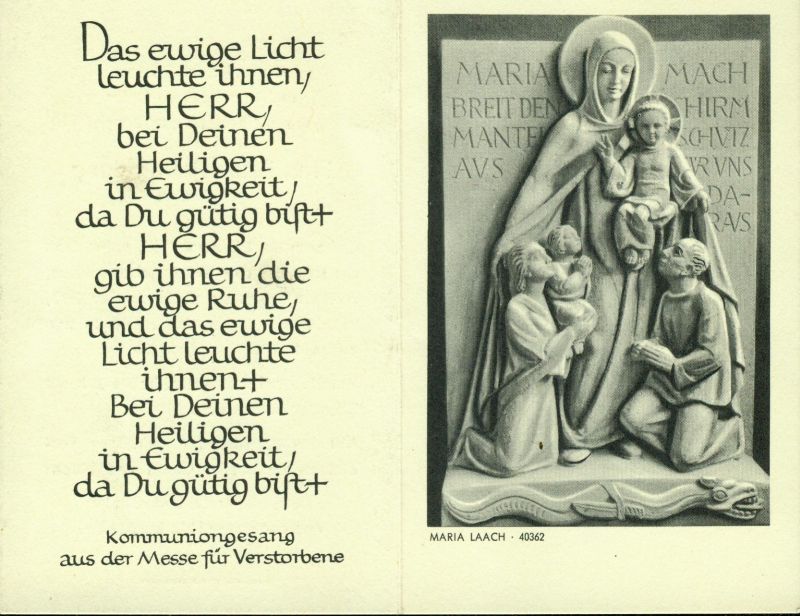 Das ewige Licht
leuchte ihnen,
HERR,
bei Deinen
Heiligen
in Ewigkeit,
da Du gütig bist+
HERR,
gib ihnen die
ewige Ruhe,
und das ewige
Licht leuchte
ihnen+
Bei Deinen
Heiligen
in Ewigkeit,
da Du gütig bist+
Kommuniongesang
aus der Messe für Verstorbene
MARIA MACH
BREIT DEN CHIRM
MANTEL SCHVTZ
AVS VR VNS
DA-
RAVS
MARIA LAACH · 40362